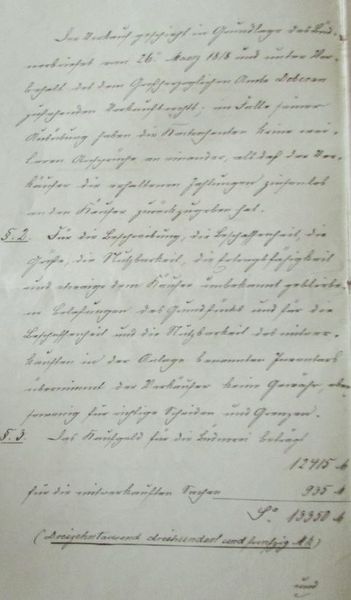 Der Verkauf geschieht in Grundlage des Büd-
nerbriefes vom 26. März 1818 und unter Vor-
behalt des dem Großherzoglichen Amte Doberan
zustehenden Vorkaufsrechts; im Falle seiner
Ausübung haben die Kontrahenten keine wei-
teren Ansprüche an einander, als daß der Ver-
käufer die erhaltenen Zahlungen zinsenlos
an den Käufer zurückzugeben hat.
§. 2. Für die Beschreibung, die Beschaffenheit, die
Größe, die Nutzbarkeit, die Ertragsfähigkeit
und etwaige dem Käufer unbekannt gebliebe-
nen Belastungen des Grundstücks und für die
Beschaffenheit und die Nutzbarkeit des mitver-
kauften in der Anlage benannten Inventars
übernimmt der Verkäufer keine Gewähr, eben
sowenig für richtige Scheiden und Grenzen.
§. 3. Das Kaufgeld für die Büdnerei beträgt
12415 M
für die mitverkauften Sachen 935 M
Sa 13350 M
(Dreizehntausend dreihundert und funfzig M)
und